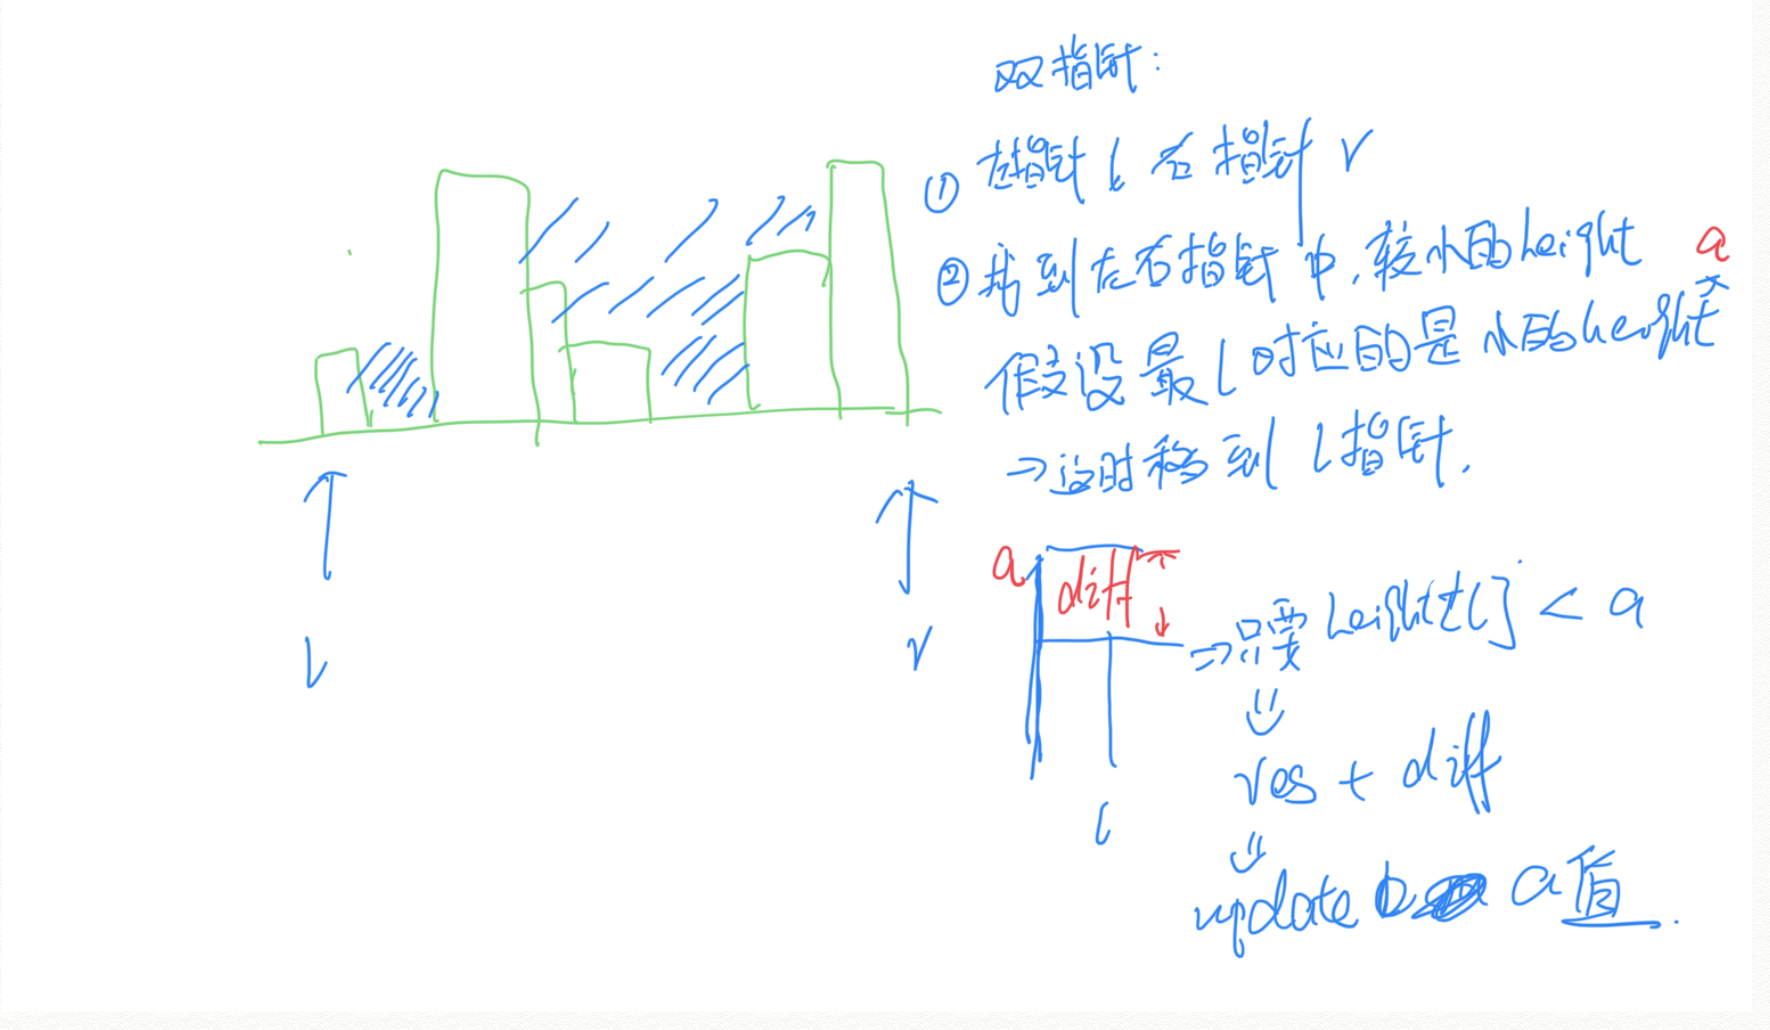 双指针:
① 左指针 l 右指针 r
② 找到左右指针中,较小的height a
假设最 l 对应的是小的height
⇒ 这时移到 l 指针.
a diff
⇒ 只要 height[l] < a
⇓
res + diff
⇓
update a值.
l
l r